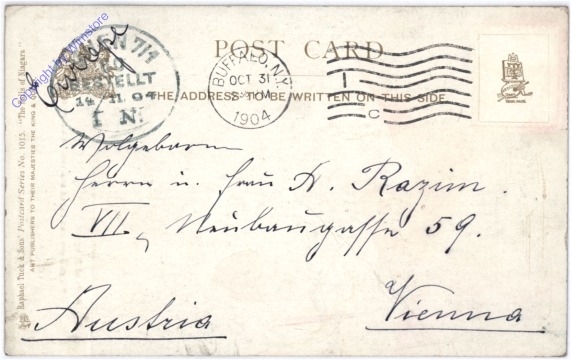 POST CARD
THE ADDRESS TO BE WRITTEN ON THIS SIDE
BUFFALO, N.Y.
OCT 31
1904
C
WIEN 7/1
BESTELLT
14 11 04
Copyright by Winnstore
Raphael Tuck & Sons' Postcard Series No. 1015. "The Falls of Niagara"
ART PUBLISHERS TO THEIR MAJESTIES THE KING &
Wolgeboren
Herrn u. Frau A. Razim.
VII, Neubaugasse 59.
Vienna
Austria